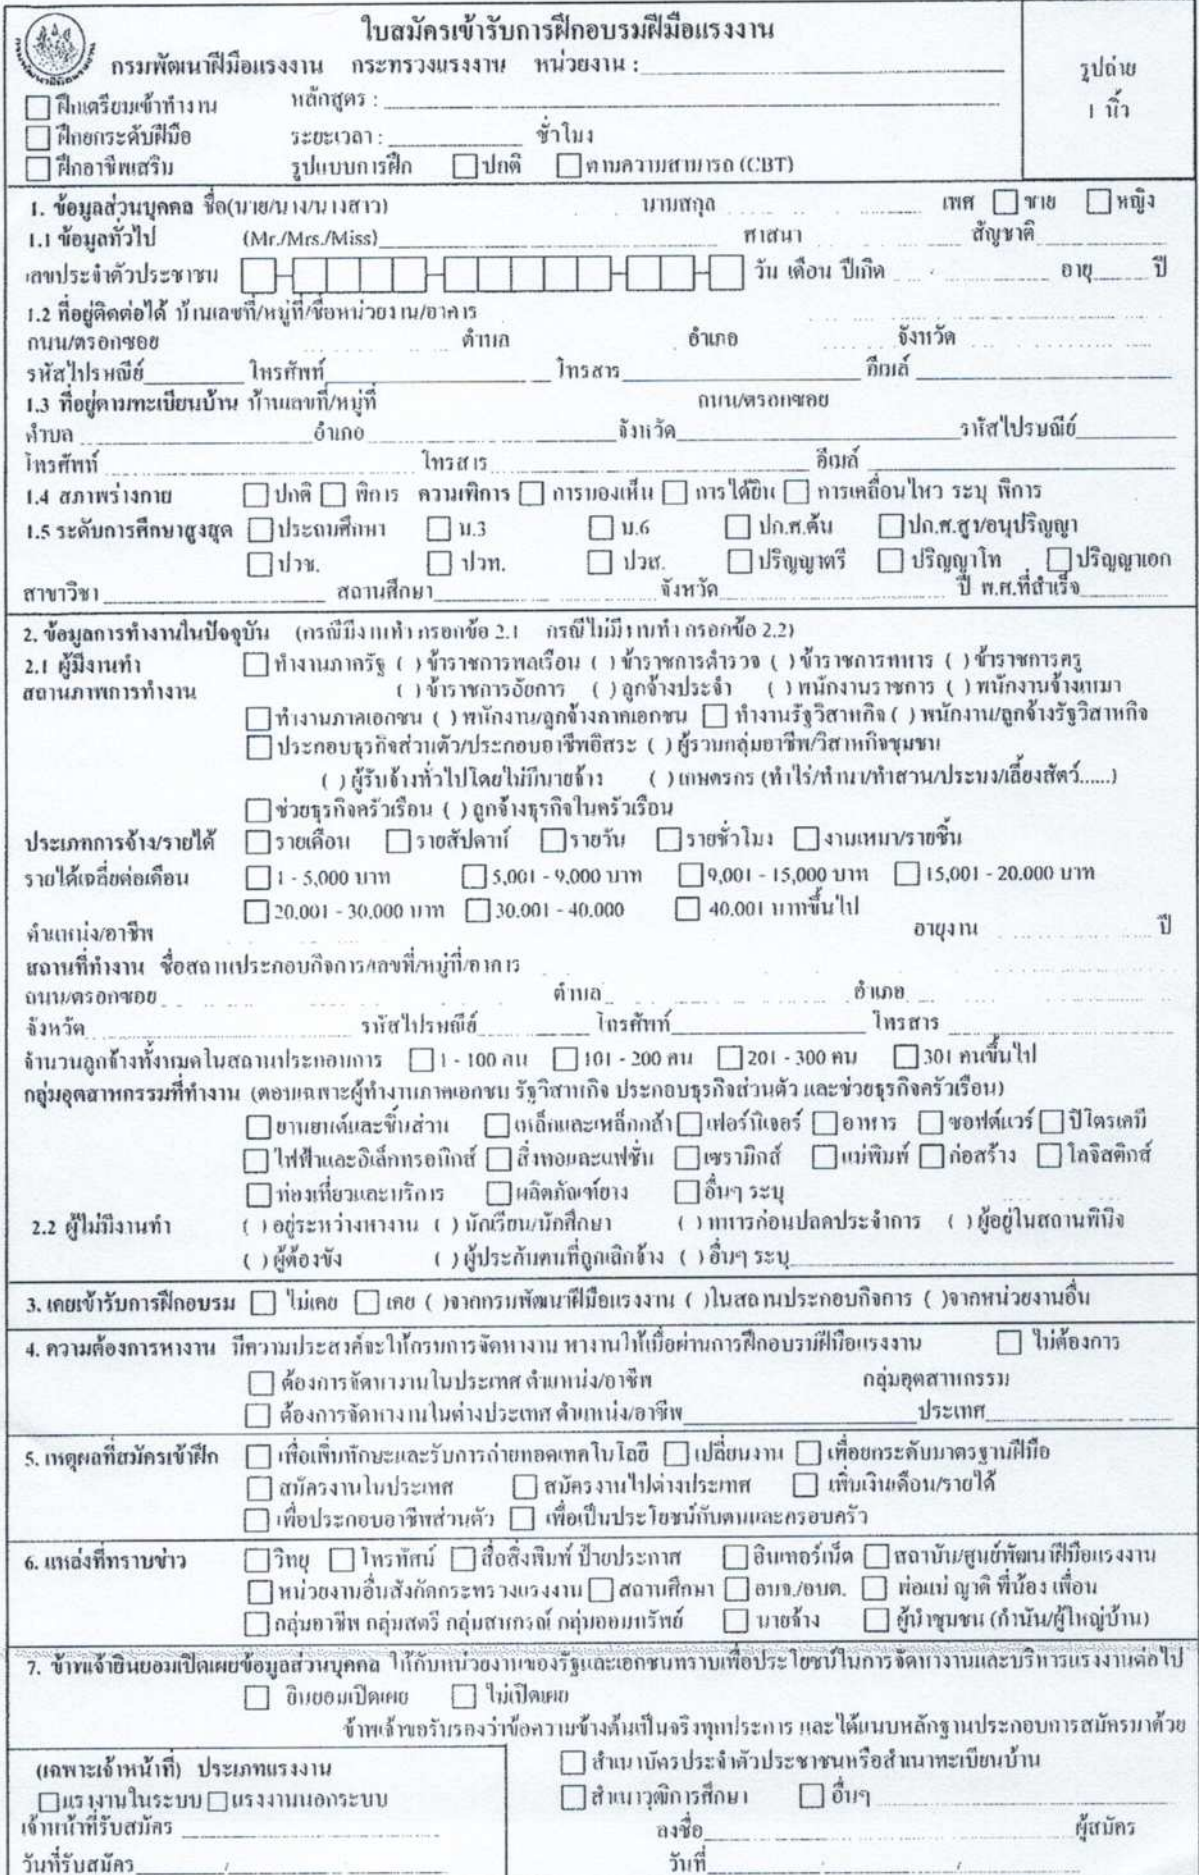 ใบสมัครเข้ารับการฝึกอบรมฝีมือแรงงาน
กรมพัฒนาฝีมือแรงงาน กระทรวงแรงงาน หน่วยงาน :
รูปถ่าย
1 นิ้ว
ฝึกเตรียมเข้าทำงาน หลักสูตร :
ฝึกยกระดับฝีมือ ระยะเวลา : ชั่วโมง
ฝึกอาชีพเสริม รูปแบบการฝึก ปกติ ตามความสามารถ (CBT)
1. ข้อมูลส่วนบุคคล ชื่อ(นาย/นาง/นางสาว) นามสกุล เพศ ชาย หญิง
1.1 ข้อมูลทั่วไป (Mr./Mrs./Miss) ศาสนา สัญชาติ
เลขประจำตัวประชาชน วัน เดือน ปีเกิด อายุ ปี
1.2 ที่อยู่ติดต่อได้ บ้านเลขที่/หมู่ที่/ชื่อหน่วยงาน/อาคาร
ถนน/ตรอกซอย ตำบล อำเภอ จังหวัด
รหัสไปรษณีย์ โทรศัพท์ โทรสาร อีเมล์
1.3 ที่อยู่ตามทะเบียนบ้าน บ้านเลขที่/หมู่ที่ ถนน/ตรอกซอย
ตำบล อำเภอ จังหวัด รหัสไปรษณีย์
โทรศัพท์ โทรสาร อีเมล์
1.4 สภาพร่างกาย ปกติ พิการ ความพิการ การมองเห็น การได้ยิน การเคลื่อนไหว ระบุ พิการ
1.5 ระดับการศึกษาสูงสุด ประถมศึกษา ม.3 ม.6 ปก.ศ.ต้น ปก.ศ.สูง/อนุปริญญา
ปวช. ปวท. ปวส. ปริญญาตรี ปริญญาโท ปริญญาเอก
สาขาวิชา สถานศึกษา จังหวัด ปี พ.ศ.ที่สำเร็จ
2. ข้อมูลการทำงานในปัจจุบัน (กรณีมีงานทำ กรอกข้อ 2.1 กรณีไม่มีงานทำ กรอกข้อ 2.2)
2.1 ผู้มีงานทำ ทำงานภาครัฐ ( ) ข้าราชการพลเรือน ( ) ข้าราชการตำรวจ ( ) ข้าราชการทหาร ( ) ข้าราชการครู
สถานภาพการทำงาน ( ) ข้าราชการอัยการ ( ) ลูกจ้างประจำ ( ) พนักงานราชการ ( ) พนักงานจ้างเหมา
ทำงานภาคเอกชน ( ) พนักงาน/ลูกจ้างภาคเอกชน ทำงานรัฐวิสาหกิจ ( ) พนักงาน/ลูกจ้างรัฐวิสาหกิจ
ประกอบธุรกิจส่วนตัว/ประกอบอาชีพอิสระ ( ) ผู้รวมกลุ่มอาชีพ/วิสาหกิจชุมชน
( ) ผู้รับจ้างทั่วไปโดยไม่มีนายจ้าง ( ) เกษตรกร (ทำไร่/ทำนา/ทำสวน/ประมง/เลี้ยงสัตว์......)
ช่วยธุรกิจครัวเรือน ( ) ลูกจ้างธุรกิจในครัวเรือน
ประเภทการจ้าง/รายได้ รายเดือน รายสัปดาห์ รายวัน รายชั่วโมง งานเหมา/รายชิ้น
รายได้เฉลี่ยต่อเดือน 1 - 5,000 บาท 5,001 - 9,000 บาท 9,001 - 15,000 บาท 15,001 - 20.000 บาท
20.001 - 30.000 บาท 30.001 - 40.000 40.001 บาทขึ้นไป
ตำแหน่ง/อาชีพ อายุงาน ปี
สถานที่ทำงาน ชื่อสถานประกอบกิจการ/เลขที่/หมู่ที่/อาคาร
ถนน/ตรอกซอย ตำบล อำเภอ
จังหวัด รหัสไปรษณีย์ โทรศัพท์ โทรสาร
จำนวนลูกจ้างทั้งหมดในสถานประกอบการ 1 - 100 คน 101 - 200 คน 201 - 300 คน 301 คนขึ้นไป
กลุ่มอุตสาหกรรมที่ทำงาน (ตอบเฉพาะผู้ทำงานภาคเอกชน รัฐวิสาหกิจ ประกอบธุรกิจส่วนตัว และช่วยธุรกิจครัวเรือน)
ยานยนต์และชิ้นส่วน เหล็กและเหล็กกล้า เฟอร์นิเจอร์ อาหาร ซอฟต์แวร์ ปิโตรเคมี
ไฟฟ้าและอิเล็กทรอนิกส์ สิ่งทอและแฟชั่น เซรามิกส์ แม่พิมพ์ ก่อสร้าง โลจิสติกส์
ท่องเที่ยวและบริการ ผลิตภัณฑ์ยาง อื่นๆ ระบุ
2.2 ผู้ไม่มีงานทำ ( ) อยู่ระหว่างหางาน ( ) นักเรียน/นักศึกษา ( ) ทหารก่อนปลดประจำการ ( ) ผู้อยู่ในสถานพินิจ
( ) ผู้ต้องขัง ( ) ผู้ประกันตนที่ถูกเลิกจ้าง ( ) อื่นๆ ระบุ
3. เคยเข้ารับการฝึกอบรม ไม่เคย เคย ( )จากกรมพัฒนาฝีมือแรงงาน ( )ในสถานประกอบกิจการ ( )จากหน่วยงานอื่น
4. ความต้องการหางาน มีความประสงค์จะให้กรมการจัดหางาน หางานให้เมื่อผ่านการฝึกอบรมฝีมือแรงงาน ไม่ต้องการ
ต้องการจัดหางานในประเทศ ตำแหน่ง/อาชีพ กลุ่มอุตสาหกรรม
ต้องการจัดหางานในต่างประเทศ ตำแหน่ง/อาชีพ ประเทศ
5. เหตุผลที่สมัครเข้าฝึก เพื่อเพิ่มทักษะและรับการถ่ายทอดเทคโนโลยี เปลี่ยนงาน เพื่อยกระดับมาตรฐานฝีมือ
สมัครงานในประเทศ สมัครงานไปต่างประเทศ เพิ่มเงินเดือน/รายได้
เพื่อประกอบอาชีพส่วนตัว เพื่อเป็นประโยชน์กับตนและครอบครัว
6. แหล่งที่ทราบข่าว วิทยุ โทรทัศน์ สื่อสิ่งพิมพ์ ป้ายประกาศ อินเทอร์เน็ต สถาบัน/ศูนย์พัฒนาฝีมือแรงงาน
หน่วยงานอื่นสังกัดกระทรวงแรงงาน สถานศึกษา อบจ./อบต. พ่อแม่ ญาติ พี่น้อง เพื่อน
กลุ่มอาชีพ กลุ่มสตรี กลุ่มสหกรณ์ กลุ่มออมทรัพย์ นายจ้าง ผู้นำชุมชน (กำนัน/ผู้ใหญ่บ้าน)
7. ข้าพเจ้ายินยอมเปิดเผยข้อมูลส่วนบุคคล ให้กับหน่วยงานของรัฐและเอกชนทราบเพื่อประโยชน์ในการจัดหางานและบริหารแรงงานต่อไป
ยินยอมเปิดเผย ไม่เปิดเผย
ข้าพเจ้าขอรับรองว่าข้อความข้างต้นเป็นจริงทุกประการ และได้แนบหลักฐานประกอบการสมัครมาด้วย
(เฉพาะเจ้าหน้าที่) ประเภทแรงงาน
แรงงานในระบบ แรงงานนอกระบบ
เจ้าหน้าที่รับสมัคร
วันที่รับสมัคร / /
สำเนาบัตรประจำตัวประชาชนหรือสำเนาทะเบียนบ้าน
สำเนาวุฒิการศึกษา อื่นๆ
ลงชื่อ ผู้สมัคร
วันที่ / /